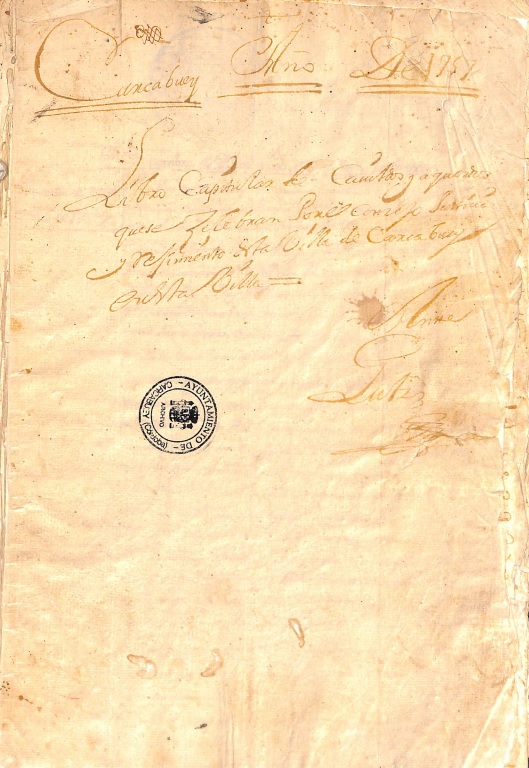 Carcabuey Año De 1757
Libro Capitular de Cavildos y aquerdos
que se Zelebran Por el Conzejo Justizia
y Rejimiento desta Villa de Carcabuey
en esta Villa =
AYUNTAMIENTO DE CARCABUEY (CORDOBA)
ARCHIVO